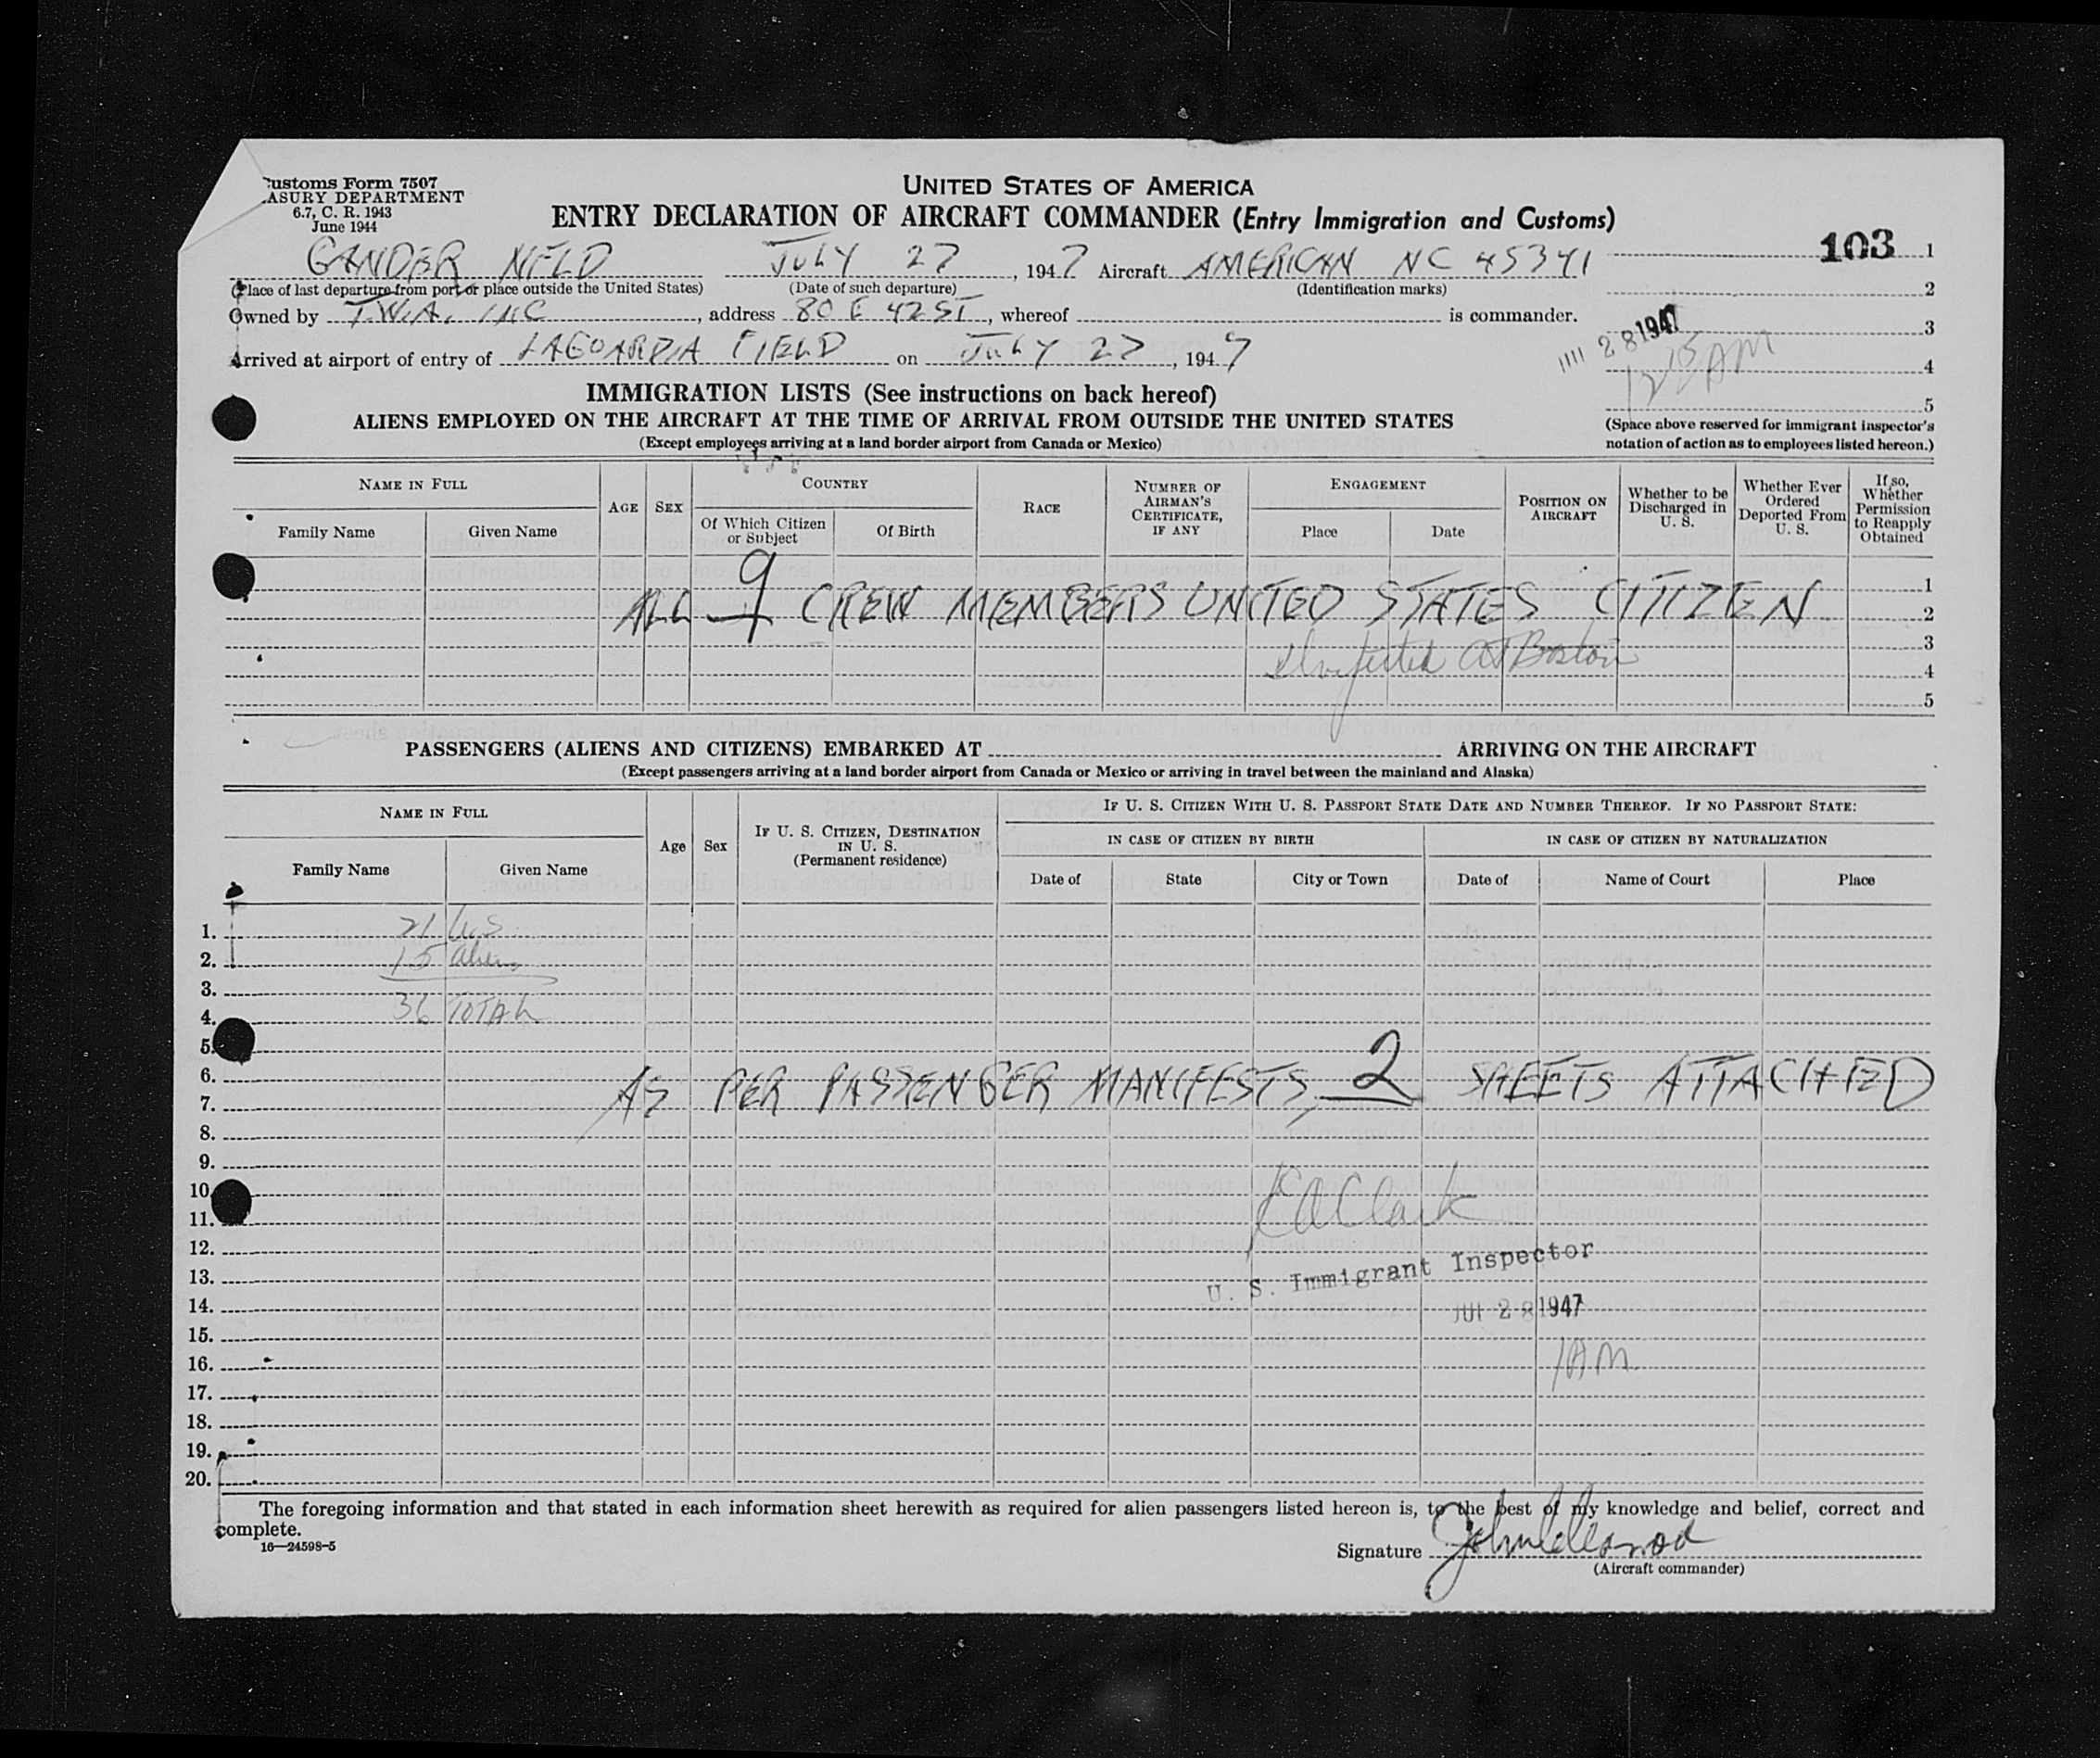 Customs Form 7507
TREASURY DEPARTMENT
6.7, C. R. 1943
June 1944
UNITED STATES OF AMERICA
ENTRY DECLARATION OF AIRCRAFT COMMANDER (Entry Immigration and Customs)
103 1
GANDER NFLD JULY 27, 1947 Aircraft AMERICAN NC 45341
(Place of last departure from port or place outside the United States) (Date of such departure) (Identification marks) 2
Owned by T.W.A. INC, address 80 E 42 ST, whereof is commander. 3
28 1947
Arrived at airport of entry of LAGUARDIA FIELD on JULY 27, 1947 4
12 15 AM
5
IMMIGRATION LISTS (See instructions on back hereof)
ALIENS EMPLOYED ON THE AIRCRAFT AT THE TIME OF ARRIVAL FROM OUTSIDE THE UNITED STATES
(Except employees arriving at a land border airport from Canada or Mexico)
(Space above reserved for immigrant inspector's
notation of action as to employees listed hereon.)
NAME IN FULL
Family Name Given Name
AGE SEX
COUNTRY
Of Which Citizen or Subject Of Birth
RACE
NUMBER OF AIRMAN'S CERTIFICATE, IF ANY
ENGAGEMENT
Place Date
POSITION ON AIRCRAFT
Whether to be Discharged in U. S.
Whether Ever Ordered Deported From U. S.
If so, Whether Permission to Reapply Obtained
1
ALL 9 CREW MEMBERS UNITED STATES CITIZEN 2
3
at Boston 4
5
PASSENGERS (ALIENS AND CITIZENS) EMBARKED AT ARRIVING ON THE AIRCRAFT
(Except passengers arriving at a land border airport from Canada or Mexico or arriving in travel between the mainland and Alaska)
NAME IN FULL
Family Name Given Name
Age Sex
IF U. S. CITIZEN, DESTINATION IN U. S. (Permanent residence)
IF U. S. CITIZEN WITH U. S. PASSPORT STATE DATE AND NUMBER THEREOF. IF NO PASSPORT STATE:
IN CASE OF CITIZEN BY BIRTH IN CASE OF CITIZEN BY NATURALIZATION
Date of State City or Town Date of Name of Court Place
1. 21 U.S
2. 15 aliens
3.
4. 36 TOTAL
5.
6.
AS PER PASSENGER MANIFESTS, 2 SHEETS ATTACHED
7.
8.
9.
10.
11. Clark
12.
13. U. S. Immigrant Inspector
14. JUL 28 1947
15.
16. 1 AM
17.
18.
19.
20.
The foregoing information and that stated in each information sheet herewith as required for alien passengers listed hereon is, to the best of my knowledge and belief, correct and
complete.
16—24598-5
Signature
(Aircraft commander)